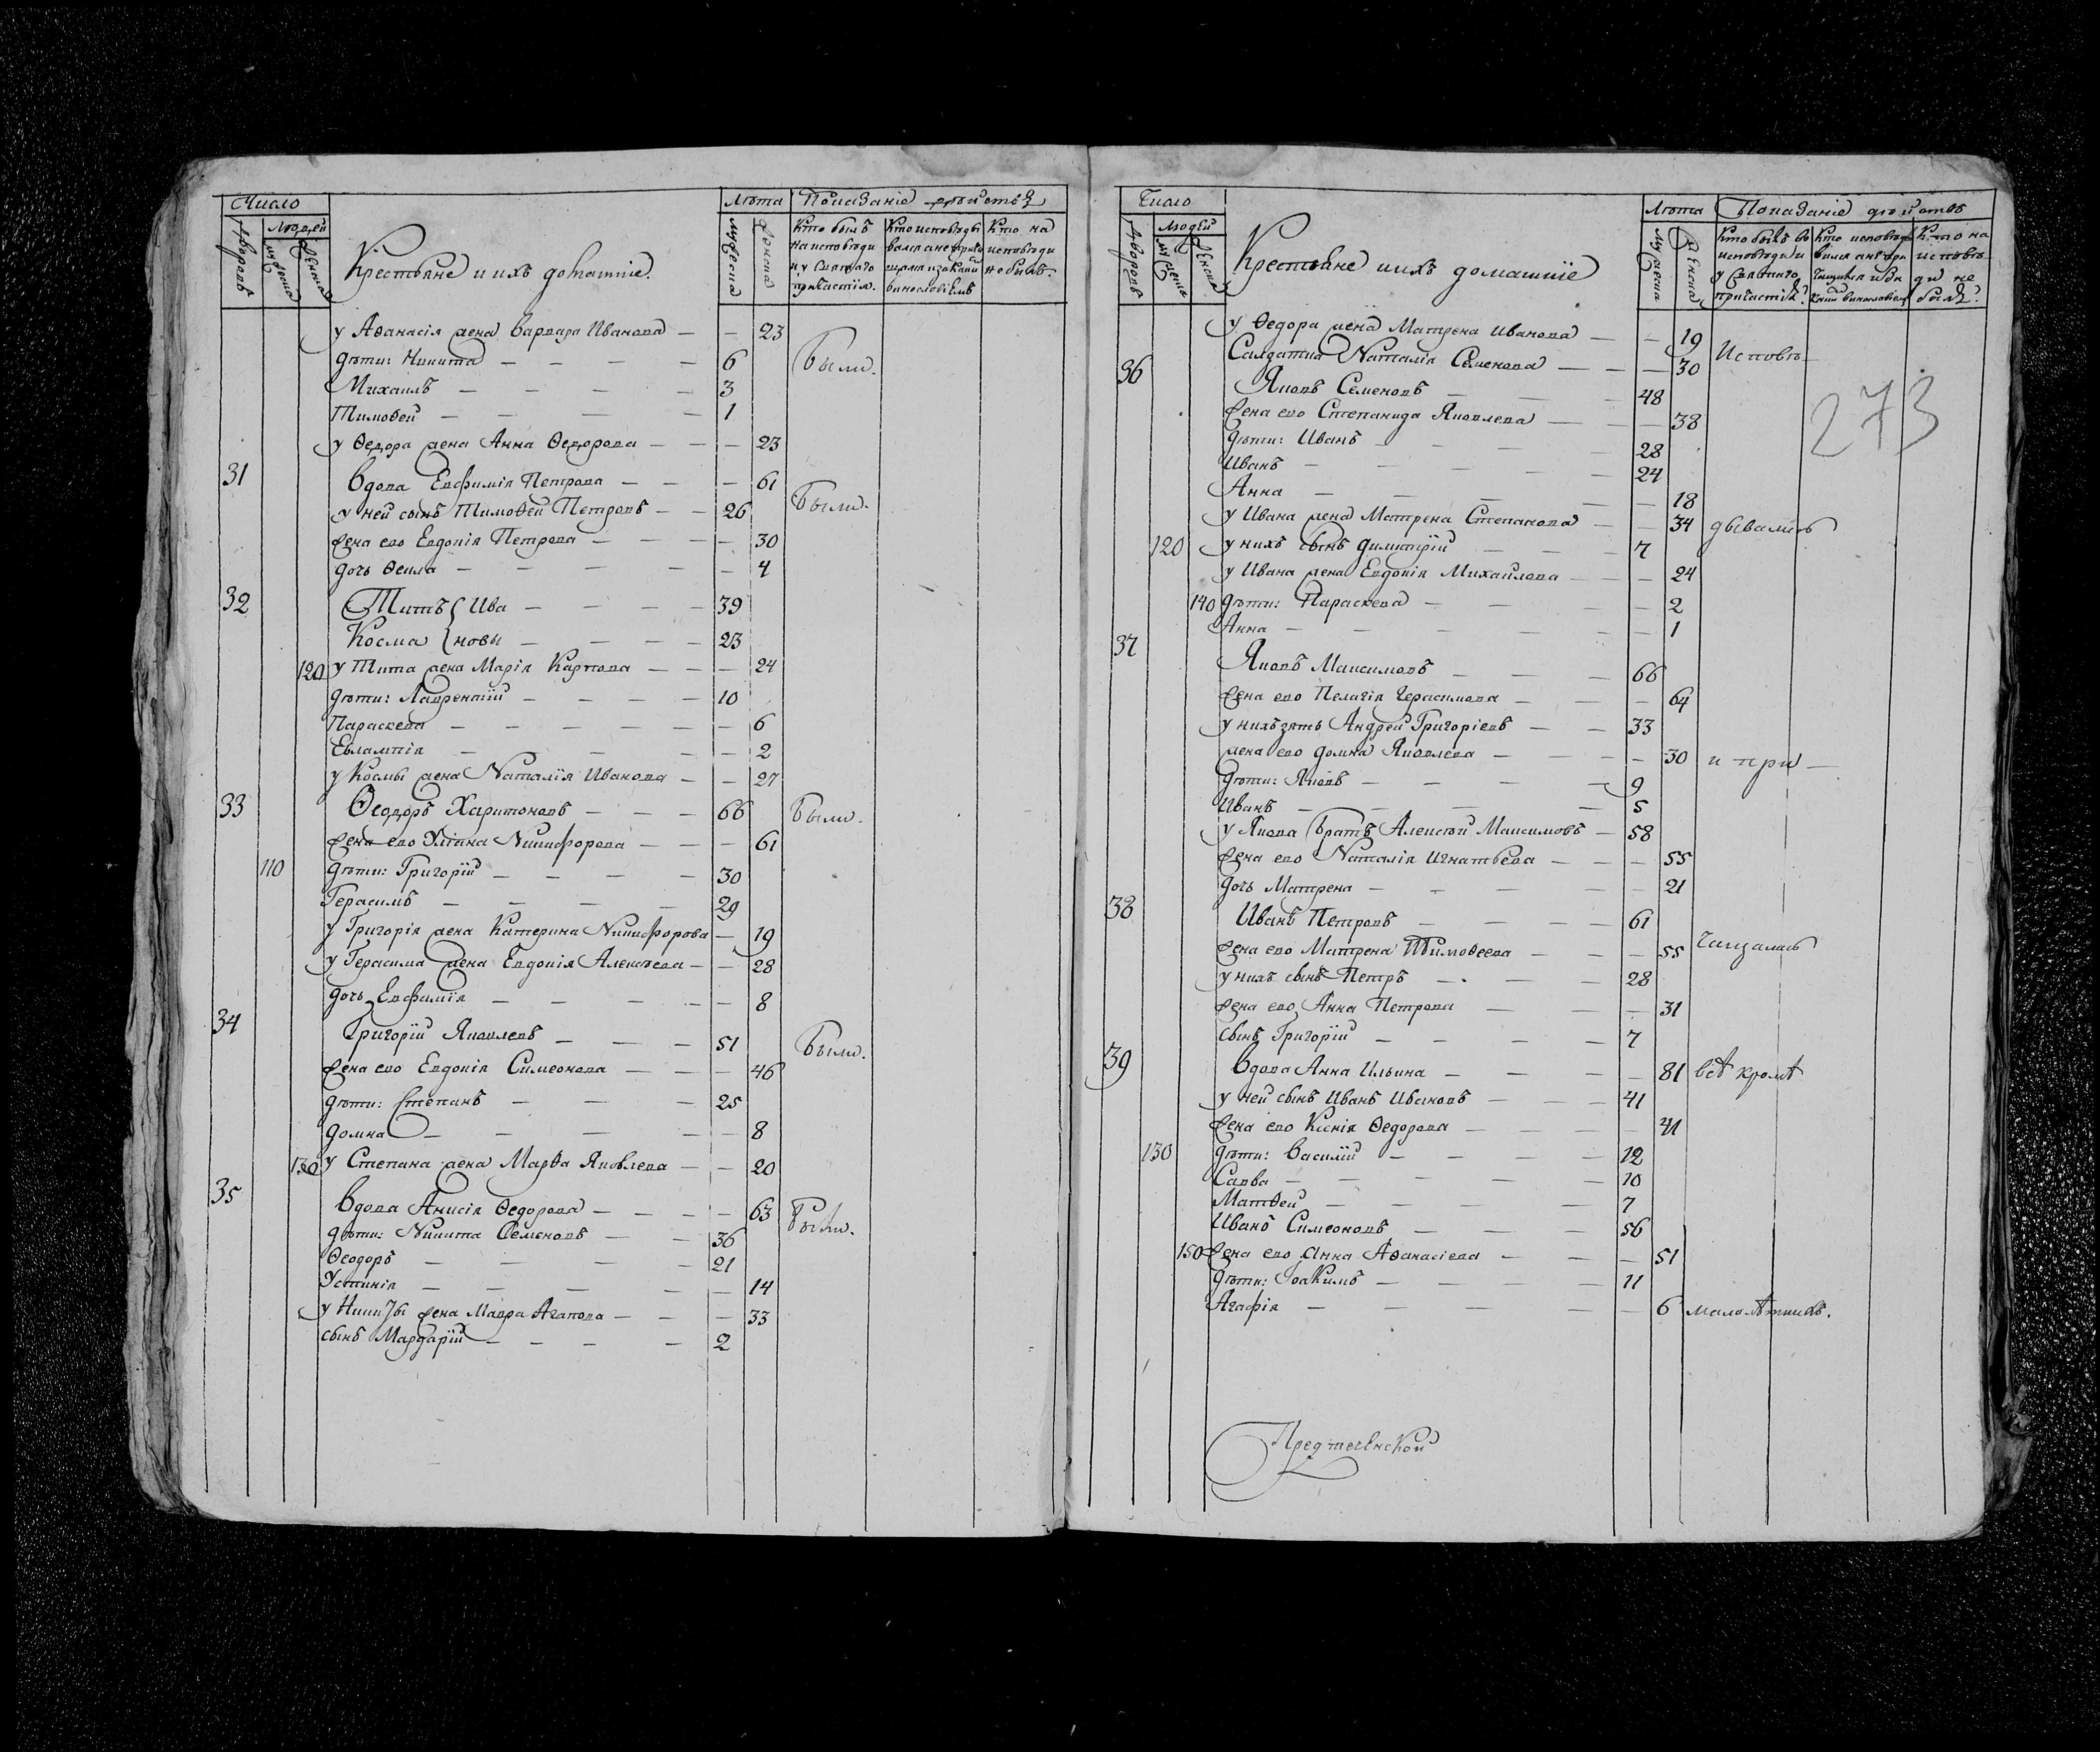 Число
Людей
Крестьяне и ихъ домашніе.
Лѣта
Показаніе
Дворовъ
мужеска
женска
мужеска
женска
Кто былъ
на исповѣди
и у Святаго
причастія.
Кто исповѣды
вался а не прича
щался и за каким
винословіемъ
Кто на
исповѣди
не былъ.
у Аѳанасія жена Варвара Иванова — — 23
дѣти: Никита — — — — 6 Были.
Михаилъ — — — — 3
Тимоѳей — — — — 1
у Ѳедора жена Анна Ѳедорова — — — 23
31 Вдова Евфимія Петрова — — — 61
у ней сынъ Тимоѳей Петровъ — — 26 Были.
жена ево Евдокія Петрова — — — — 30
дочь Ѳекла — — — — — 4
32 Титъ { Ива — — — — 39
Косма { новы — — — — 23
120 у Тита жена Марія Карпова — — — 24
дѣти: Лаврентій — — — — 10
Параскева — — — — — — 6
Евлампія — — — — — 2
у Космы жена Наталія Иванова — — 27
33 Ѳеодоръ Харитоновъ — — — 66 Были.
жена ево Уліана Никифорова — — — 61
110 дѣти: Григорій — — — — 30
Герасимъ — — — — 29
у Григорія жена Катерина Никифорова — 19
у Герасима жена Евдокія Алексѣева — — 28
дочь Евфимія — — — — — 8
34 Григорій Яковлевъ — — — 51 Были.
жена ево Евдокія Симеонова — — — 46
дѣти: Степанъ — — — 25
Домна — — — — — 8
130 у Степана жена Марѳа Яковлева — — 20
35 Вдова Анисія Ѳедорова — — — — 63 Были.
дѣти: Никита Семеновъ — — 36
Ѳеодоръ — — — — 21
Устинія — — — — — 14
у Никиты жена Мавра Агапова — — — 33
сынъ Мардарій — — — — 2
Число
Людей
Крестьяне и ихъ домашніе
Лѣта
Показаніе дѣйствъ
Дворовъ
мужеска
женска
мужеска
женска
Кто былъ во
исповѣди и
у Святаго
причастія?
Кто исповѣды
вался а не при
чащался и за
каким винословіем
Кто на
исповѣ
ди не
былъ?
273
у Ѳедора жена Матрена Иванова — — 19
Салдатка Наталія Семенова — — — 30 Исповѣ—
36 Яковъ Семеновъ — — — 48
жена ево Степанида Яковлева — — — 38
дѣти: Иванъ — — — 28
Иванъ — — — — — 24
Анна — — — — — 18
у Ивана жена Матрена Степанова — — 34 дывались
120 у нихъ сынъ Димитрій — — — 7
у Ивана жена Евдокія Михайлова — — — 24
140 дѣти: Параскева — — — — 2
Анна — — — — — — 1
37 Яковъ Максимовъ — — — 66
жена ево Пелагія Герасимова — — — — 64
у нихъ зять Андрей Григоріевъ — — 33
жена ево Домна Яковлева — — — — 30 и при—
дѣти: Яковъ — — — — 9
Иванъ — — — — 5
у Якова братъ Алексѣй Максимовъ — 58
жена ево Наталія Игнатьева — — — 55
дочь Матрена — — — — — 21
38 Иванъ Петровъ — — — — 61
жена ево Матрена Тимоѳеева — — — 55 чащались
у нихъ сынъ Петръ — — — 28
жена ево Анна Петрова — — — 31
сынъ Григорій — — — — 7
39 Вдова Анна Ильина — — — — 81 всѣ кромѣ
у ней сынъ Иванъ Ивановъ — — — 41
жена ево Ксенія Ѳедорова — — — — 41
130 дѣти: Василій — — — — 12
Савва — — — — — 10
Матвей — — — — 7
Иванъ Симеоновъ — — — 56
150 жена ево Анна Аѳанасіева — — — 51
дѣти: Іоакимъ — — — — 11
Агафія — — — — — 6 малолѣтникъ.
Предтеченской